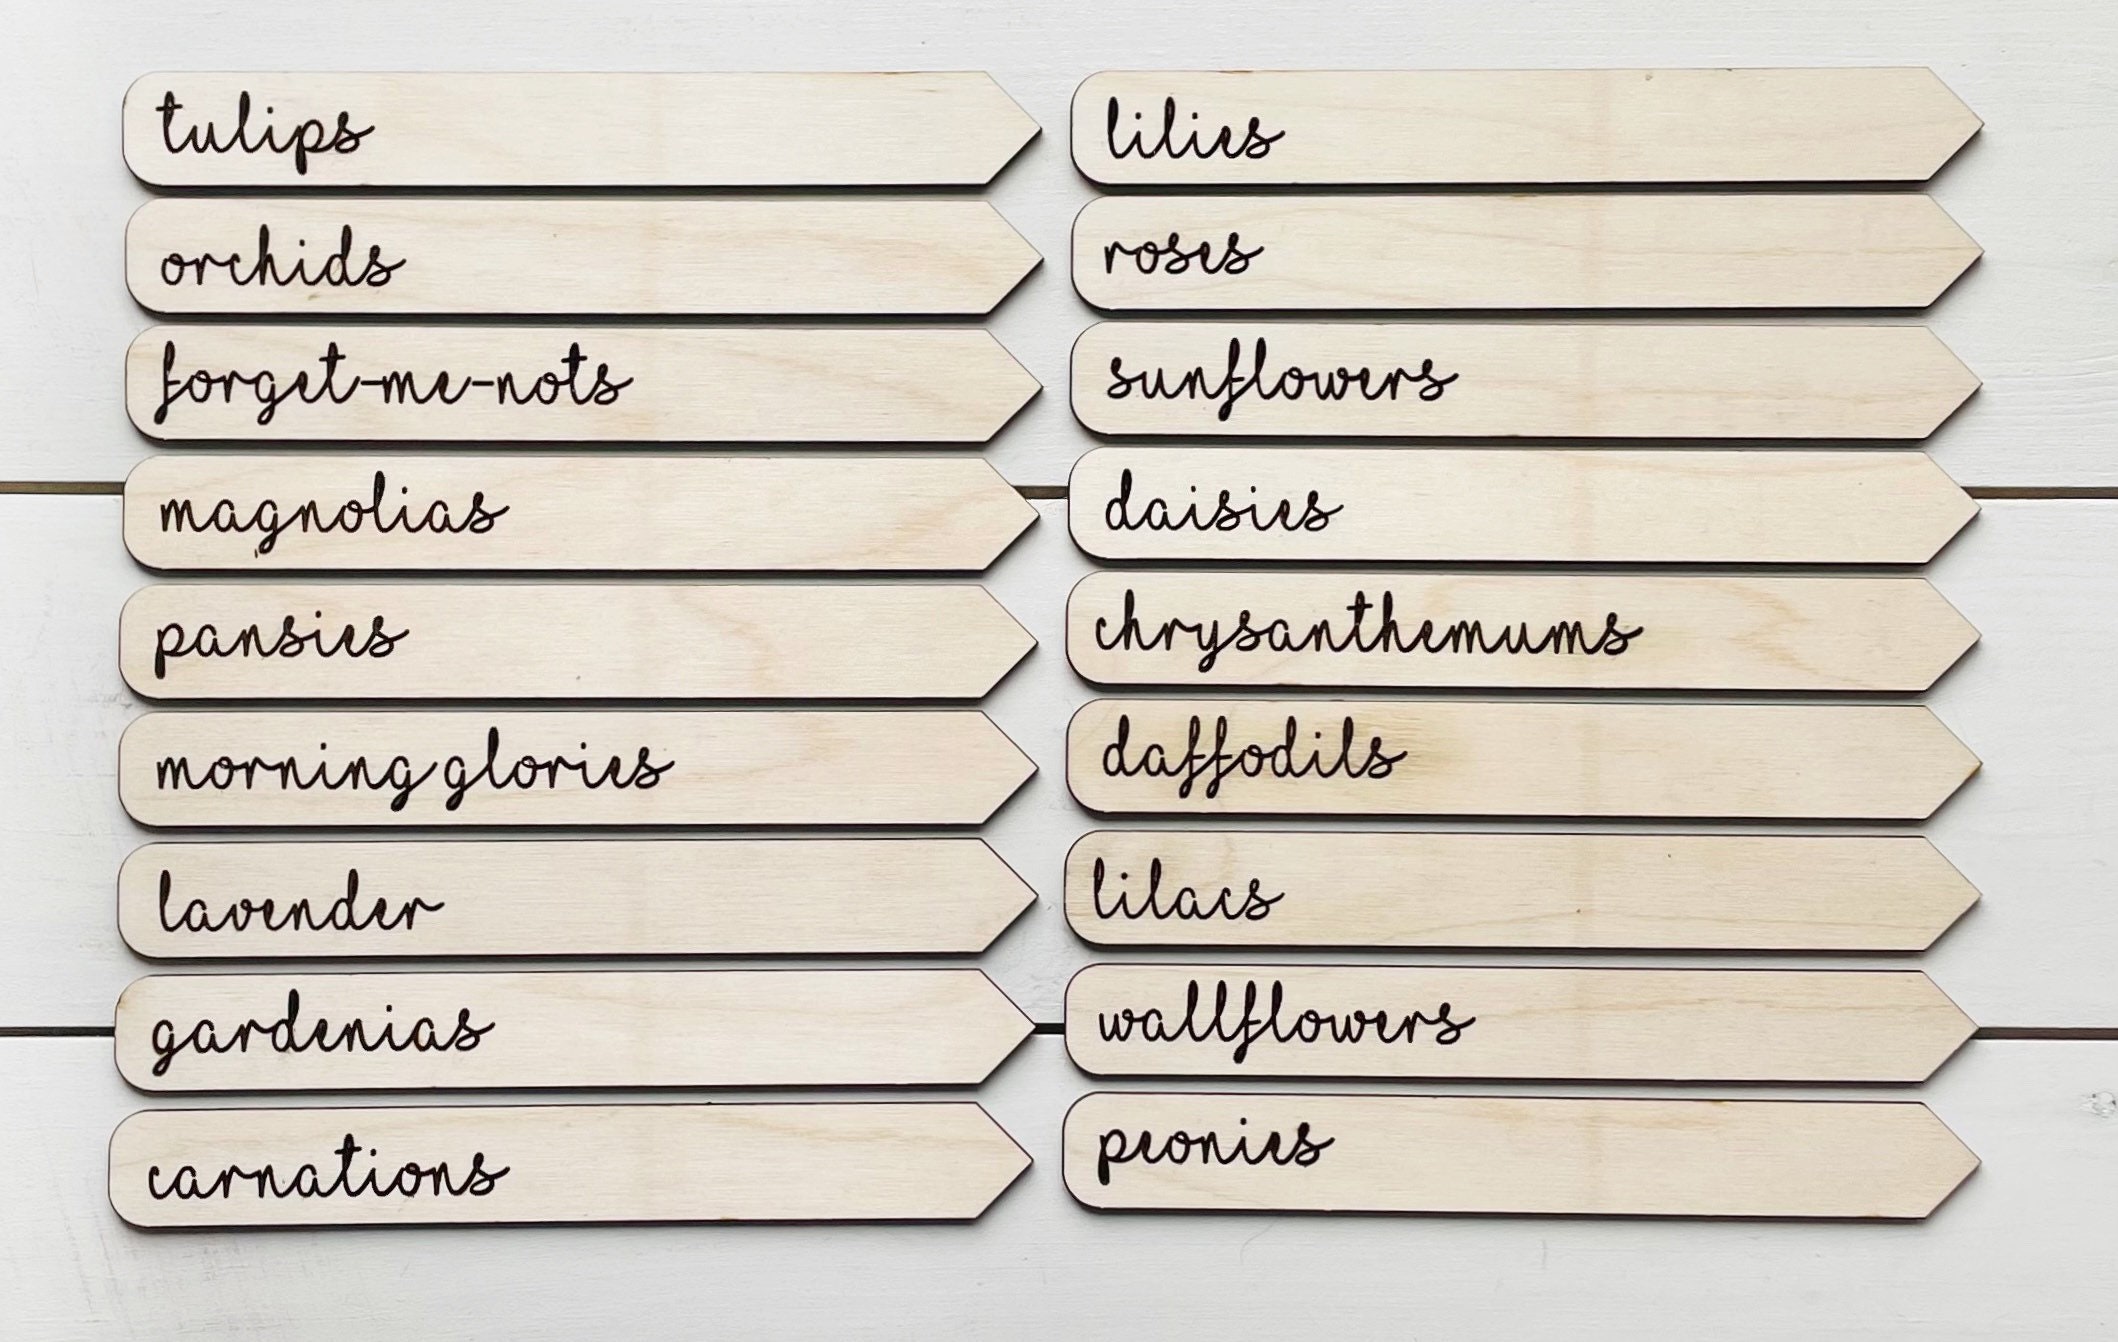 tulips
orchids
forget-me-nots
magnolias
pansies
morning glories
lavender
gardenias
carnations
lilies
roses
sunflowers
daisies
chrysanthemums
daffodils
lilacs
wallflowers
peonies